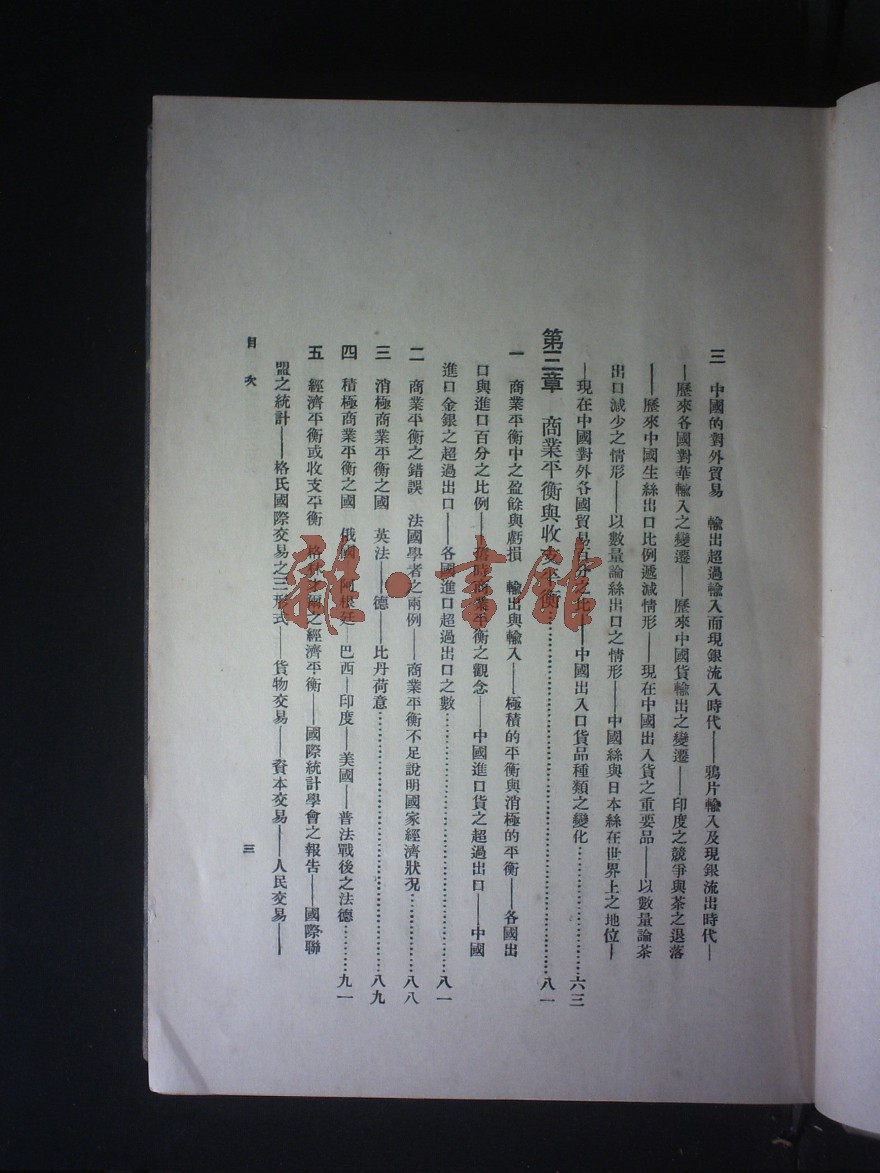 三　中國的對外貿易　輸出超過輸入而現銀流入時代——鴉片輸入及現銀流出時代—
—歷來各國對華輸入之變遷——歷來中國貨輸出之變遷——印度之競爭與茶之退落
——歷來中國生絲出口比例遞減情形——現在中國出入貨之重要品——以數量論茶
出口減少之情形——以數量論絲出口之情形——中國絲與日本絲在世界上之地位—
—現在中國對外各國貿易百分之比——中國出入口貨品種類之變化…………六三
第三章　商業平衡與收支平衡…………八一
一　商業平衡中之盈餘與虧損　輸出與輸入——極積的平衡與消極的平衡——各國出
口與進口百分之比例——舊時商業平衡之觀念——中國進口貨之超過出口——中國
進口金銀之超過出口——各國進口超過出口之數…………八一
二　商業平衡之錯誤　法國學者之兩例——商業平衡不足說明國家經濟狀況…………八八
三　消極商業平衡之國　英法——德——比丹荷意…………八九
四　積極商業平衡之國　俄國—阿根廷—巴西—印度——美國——普法戰後之法德…………九一
五　經濟平衡或收支平衡　格林才爾之經濟平衡——國際統計學會之報告——國際聯
盟之統計——格氏國際交易之三形式——貨物交易——資本交易——人民交易——
目次
三
雜·書館